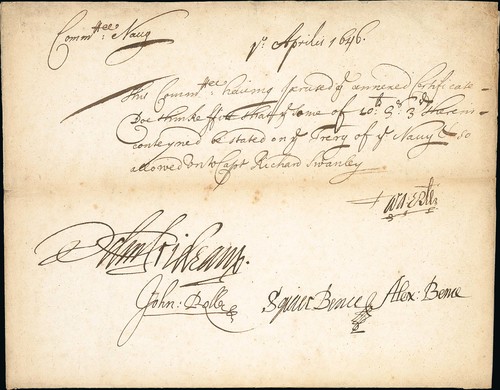 Comm^ttee: Navy
1°. Aprilis 1646.
This Comm^ttee having perused y^e annexed Certificate
Doe thinke fitt that y^e some of 10^li: 3^s: 3^d: therein
conteyned be stated on y^e Trery of y^e Navy & so
allowed unto Capt Richard Swanley
Warwick
John: Rolle Squier Bence Alex: Bence